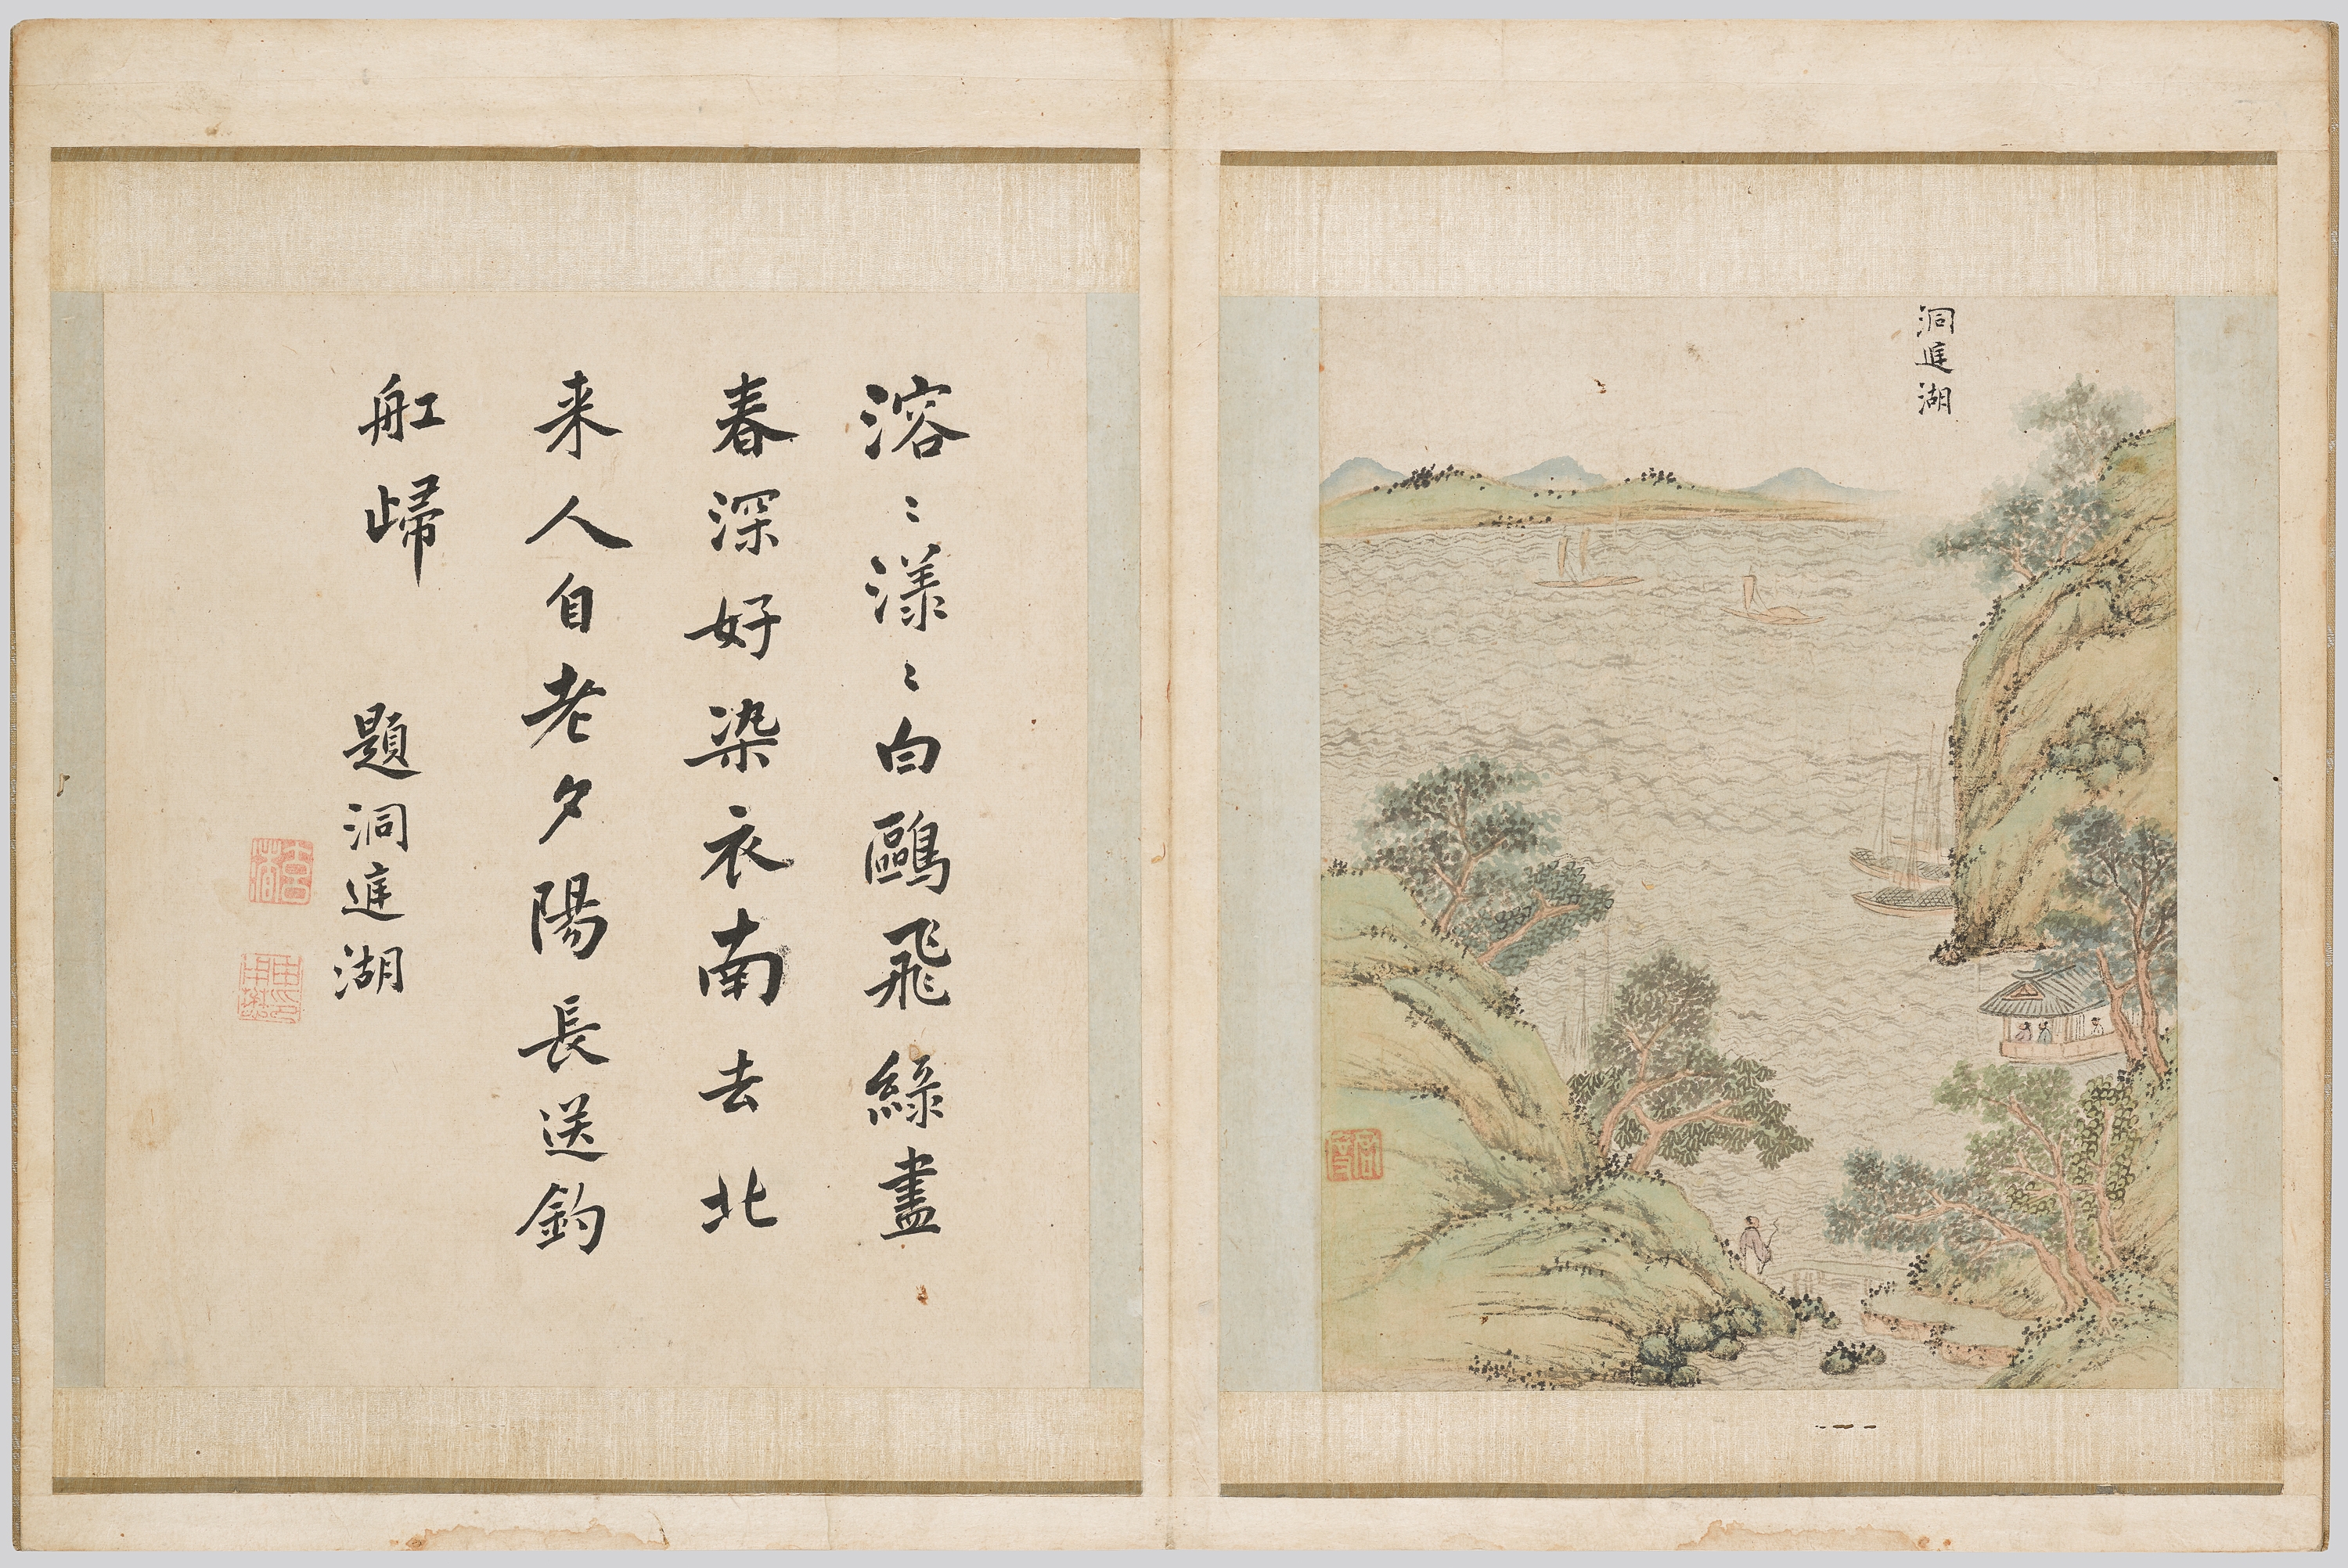 洞庭湖
溶〻漾〻白鷗飛綠盡
春深好染衣南去北
来人自老夕陽長送釣
舡歸
題洞庭湖